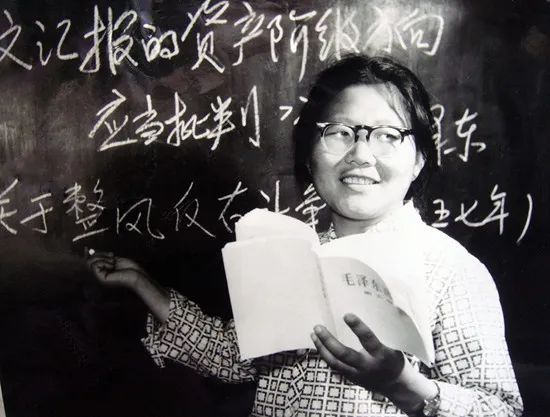 文汇报的资产阶级方向
应当批判 泽东
关于整风反右斗争 五七年)
毛泽东